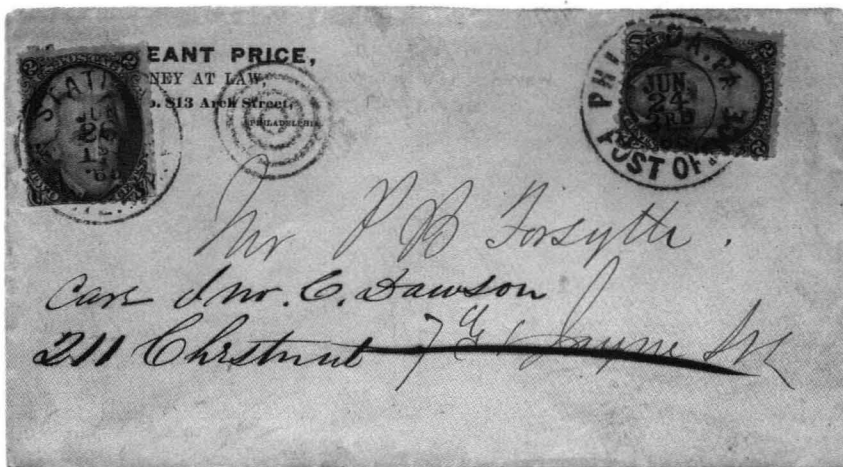 EANT PRICE,
NEY AT LAW,
o. 813 Arch Street,
PHILADELPHIA
STATI
PHIL DA. PA
JUN.
24
POST OFFICE
Mr P B Forsyth
Care Jno. C. Dawson
211 Chestnut 7 & Jayne